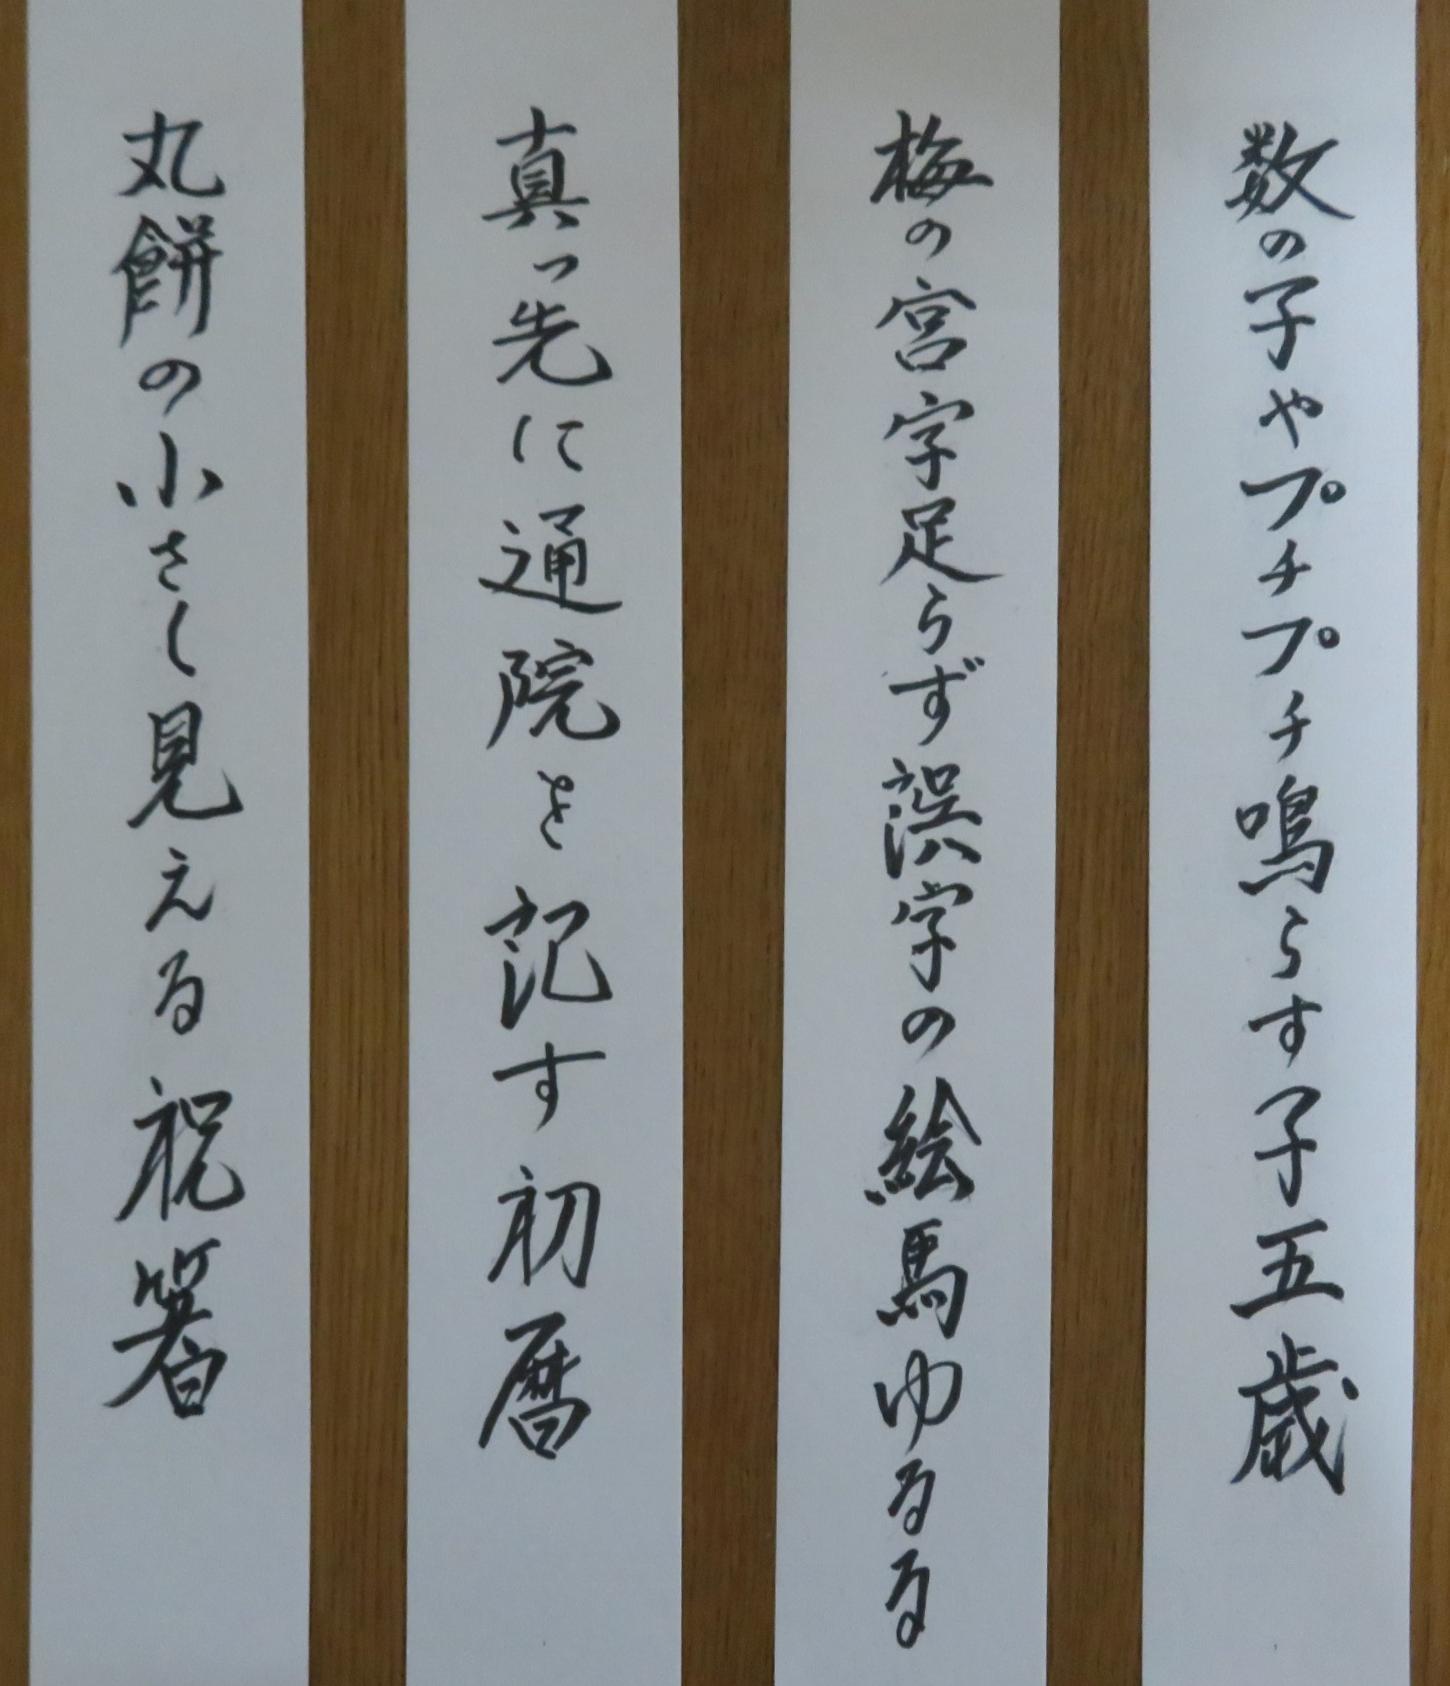 数の子やプチプチ鳴らす子五歳
梅の宮字足らず誤字の絵馬ゆるる
真っ先に通院を記す初暦
丸餅の小さく見える祝箸